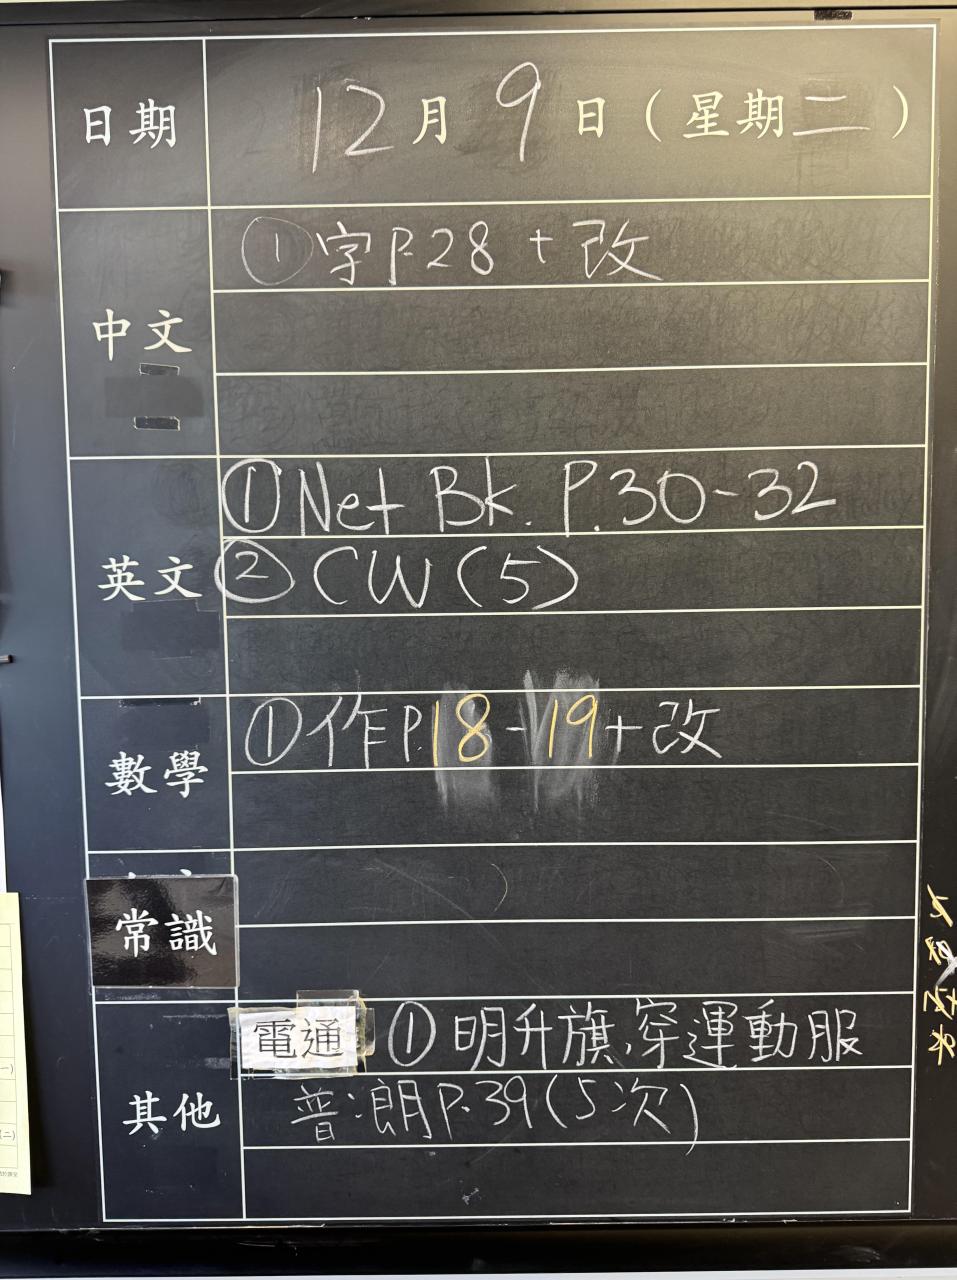 日期 12月9日(星期二)
中文
①字P.28 + 改
英文
①Net Bk. P.30-32
②CW(5)
數學
①作P.18-19+改
常識
其他
電通 ①明升旗,穿運動服
普:朗P.39(5次)